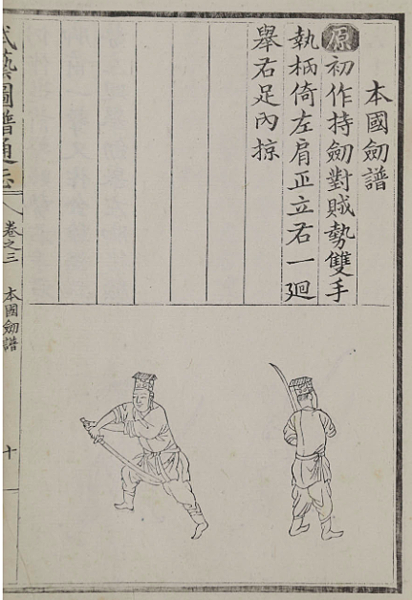 本國劍譜
原初作持劍對賊勢雙手
執柄倚左肩正立右一廻
舉右足內掠
武藝圖譜通志
卷之三
本國劍譜
十一